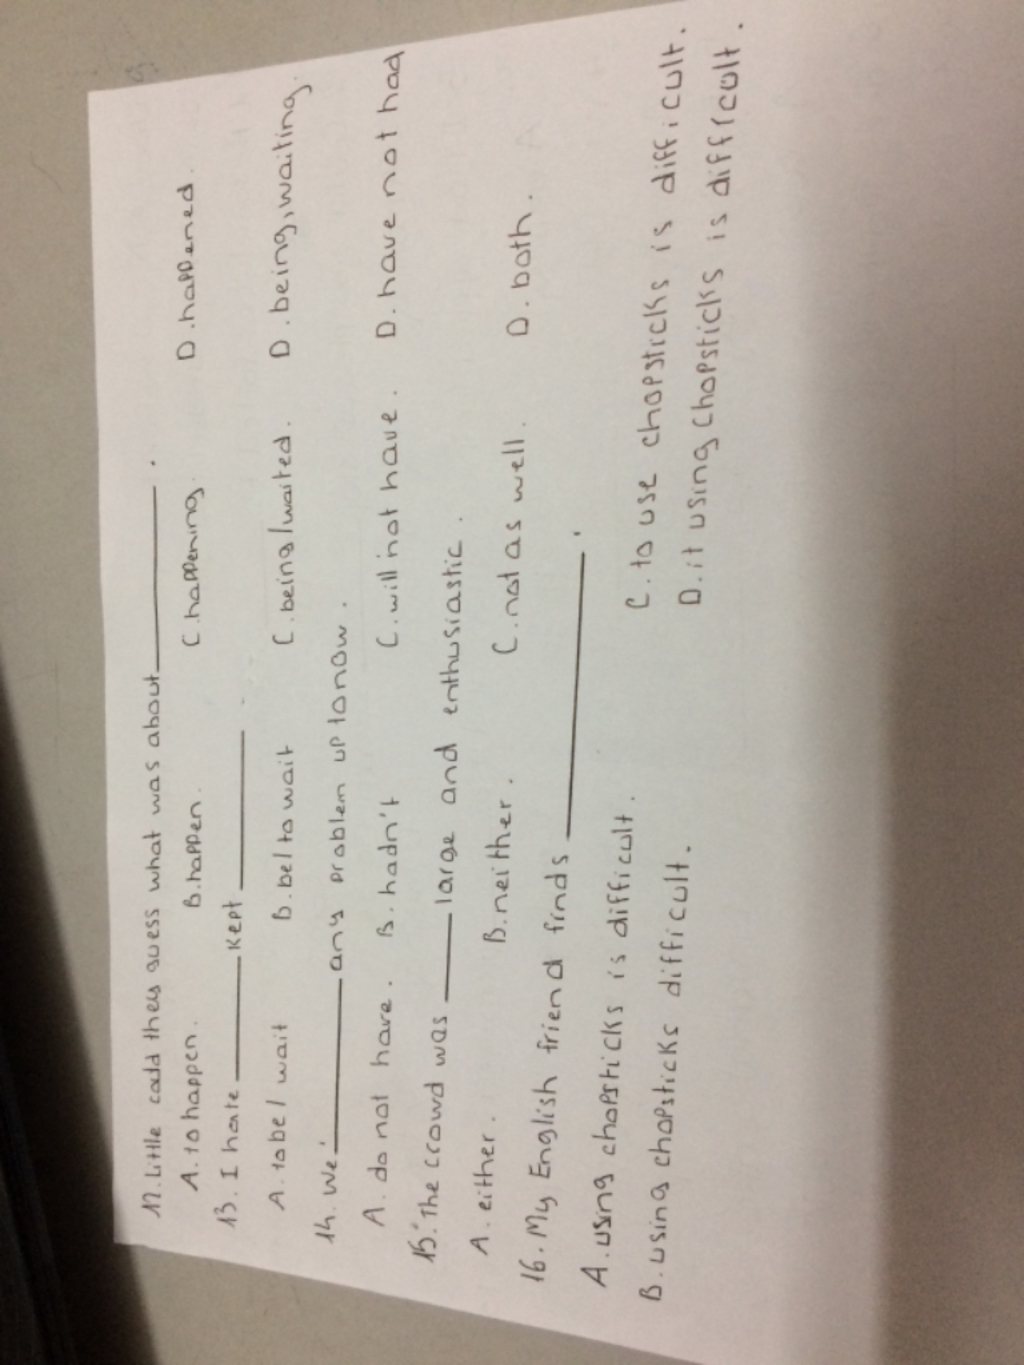 12. Little cold they guess what was about ______ .
A. to happen. B. happen. C. happening. D. happened.
13. I hate ______ kept ______ .
A. to be / wait B. be / to wait C. being / waited. D. being, waiting.
14. We ______ any problem up to now .
A. do not have. B. hadn't C. will not have. D. have not had
15. The crowd was ______ large and enthusiastic.
A. either. B. neither. C. not as well. D. both.
16. My English friend finds ______ .
A. using chopsticks is difficult. C. to use chopsticks is difficult.
B. using chopsticks difficult. D. it using chopsticks is difficult.